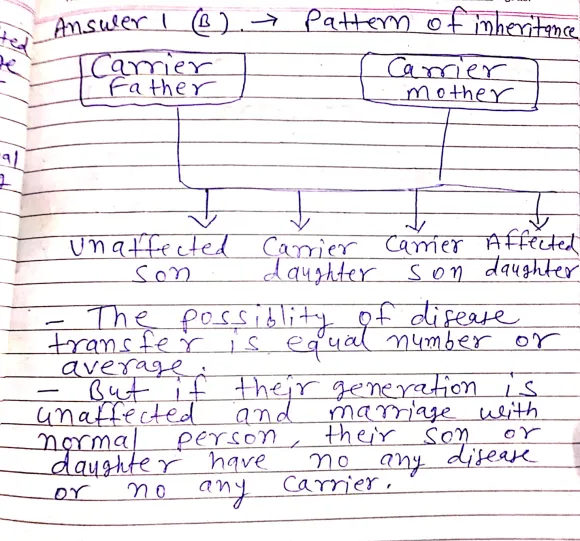 Answer 1 (B). → Pattern of inheritance
Carrier Father
Carrier mother
Unaffected son
Carrier daughter
Carrier son
Affected daughter
- The possiblity of disease
transfer is equal number or
average.
- But if their generation is
unaffected and marriage with
normal person, their son or
daughter have no any disease
or no any carrier.